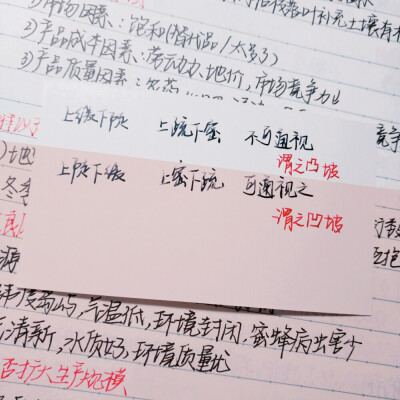 1)市场因素:饱和(替代品/太多了)
2)产品成本因素:劳动力、地价,市场竞争力
3)产品质量因素:
上缓下陡 上疏下密 不可通视
谓之凸坡
上陡下缓 上密下疏 可通视之
谓之凹坡
气温低,环境封闭,蜜蜂病虫害少
清新,水质好,环境质量优
否扩大生产规模